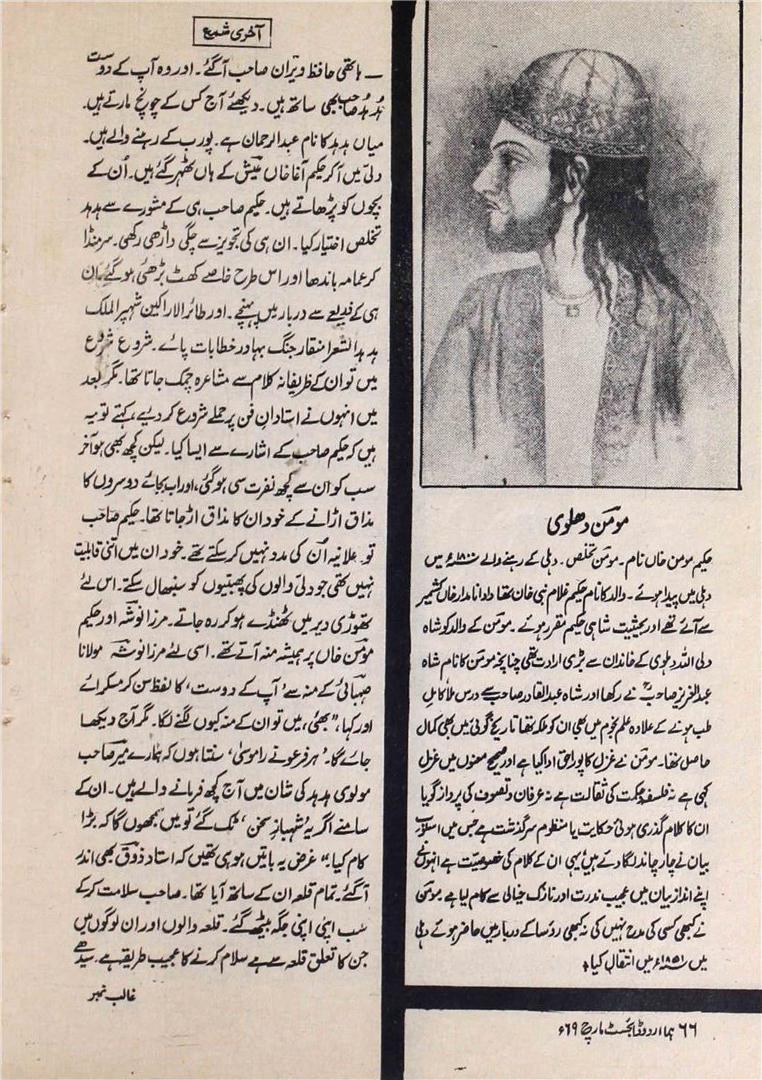 آخری شمع
ـــ ہاتھی حافظ ویران صاحب آگئے۔ اور وہ آپ کے دوست
ہُد ہُد صاحب بھی ساتھ ہیں۔ دیکھئے آج کس کے چونچ مارتے ہیں۔
میاں ہدہد کا نام عبدالرحمان ہے۔ پورب کے رہنے والے ہیں۔
دلی میں آکر حکیم آغا خاں عیش کے ہاں ٹھہر گئے ہیں۔ اُن کے
بچوں کو پڑھاتے ہیں۔ حکیم صاحب ہی کے مشورے سے ہدہد
تخلص اختیار کیا۔ ان ہی کی تجویز سے چگی داڑھی رکھی۔ سر منڈا
کر عمامہ باندھا اور اس طرح خاصے کھٹ بڑھئی ہو گئے۔ ان
ہی کے ذریعے سے دربار میں پہنچے۔ اور طائر الاراکین شہپر الملک
ہدہد الشعرا منقار جنگ بہادر خطابات پائے۔ شروع شروع
میں تو ان کے ظریفانہ کلام سے مشاعرہ چمک جاتا تھا۔ مگر بعد
میں انہوں نے استادانِ فن پر حملے شروع کر دیے، کہتے تو یہ
ہیں کہ حکیم صاحب کے اشارے سے ایسا کیا۔ لیکن کچھ بھی ہو آخر
سب کو اُن سے کچھ نفرت سی ہو گئی، اور اب بجائے دوسروں کا
مذاق اڑانے کے خود ان کا مذاق اڑ جاتا تھا۔ حکیم صاحب
تو علانیہ اُن کی مدد نہیں کر سکتے تھے۔ خود ان میں اتنی قابلیت
نہیں تھی جو دلی والوں کی پھبتیوں کو سنبھال سکتے۔ اس لئے
تھوڑی دیر میں ٹھنڈے ہو کر رہ جاتے۔ مرزا نوشہ اور حکیم
مومن خاں پر ہمیشہ منہ آتے تھے۔ اسی لئے مرزا نوشہ مولانا
صہبائی کے منہ سے ’آپ کے دوست‘ کا لفظ سن کر مسکرائے
اور کہا، "بھئی، میں تو ان کے منہ کیوں لگنے لگا۔ مگر آج دیکھا
جائے گا۔ ’ہر فرعونے را موسیٰ‘ سنتا ہوں کہ ہمارے میر صاحب
مولوی ہدہد کی شان میں آج کچھ فرمانے والے ہیں۔ ان کے
سامنے اگر یہ ’شہبازِ سخن‘ ٹک گئے تو میں سمجھوں گا کہ بڑا
کام کیا۔" غرض یہ باتیں ہو ہی رہی تھیں کہ استاد ذوق بھی اندر
آگئے۔ تمام قلعہ ان کے ساتھ آیا تھا۔ صاحب سلامت کر کے
سب اپنی اپنی جگہ بیٹھ گئے۔ قلعہ والوں اور ان لوگوں میں
جن کا تعلق قلعہ سے ہے سلام کرنے کا عجیب طریقہ ہے۔ سیدھے
غالب نمبر
مومن دھلوی
حکیم مومن خاں نام۔ مومن تخلص۔ دہلی کے رہنے والے ۱۸۰۰ء میں
دہلی میں پیدا ہوئے۔ والد کا نام حکیم غلام نبی خان تھا دادا نامدار خاں کشمیر
سے آئے تھے اور بحیثیت شاہی حکیم مقرر ہوئے۔ مومن کے والد کو شاہ
ولی اللہ دہلوی کے خاندان سے بڑی ارادت تھی چنانچہ مومن کا نام شاہ
عبدالعزیز صاحبؒ نے رکھا اور شاہ عبدالقادر صاحب سے درس ملا کامل
طب ہونے کے علاوہ علم نجوم میں بھی ان کو ملکہ تھا تاریخ گوئی میں بھی کمال
حاصل تھا۔ مومن نے غزل کا پورا حق ادا کیا ہے اور صحیح معنوں میں غزل
کہی ہے نہ فلسفہ و حکمت کی ثقالت ہے نہ عرفان و تصوف کی پرداز گویا
ان کا کلام گذری ہوئی حکایت یا منظوم سرگذشت ہے جس میں اسلوب
بیان نے چار چاند لگا دئے ہیں یہی ان کے کلام کی خصوصیت ہے انہوں نے
اپنے انداز بیان میں عجیب ندرت اور نازک خیالی سے کام لیا ہے۔ مومن
نے کبھی کسی کی مدح نہیں کی نہ کبھی رؤسا کے دربار میں حاضر ہوئے دہلی
میں ۱۸۵۱ء میں انتقال کیا۔
۶۶ ہما اردو ڈائجسٹ مارچ ۶۹ء